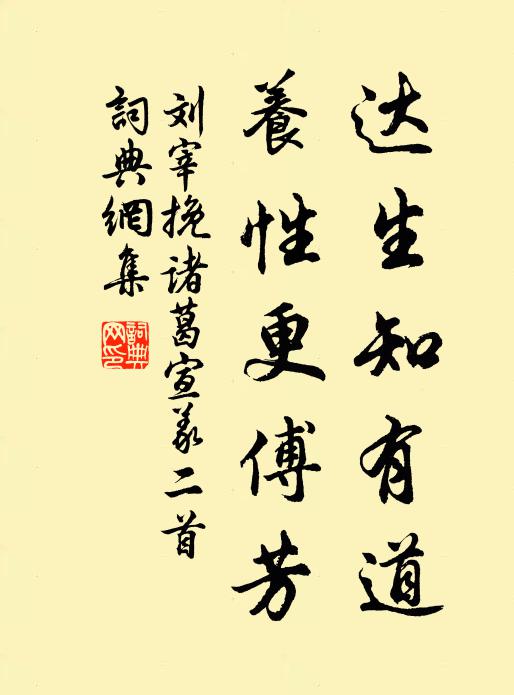 达生知有道
養性更傅芳
刘宰挽诸葛宣义二首
詞典網集
詞典网印